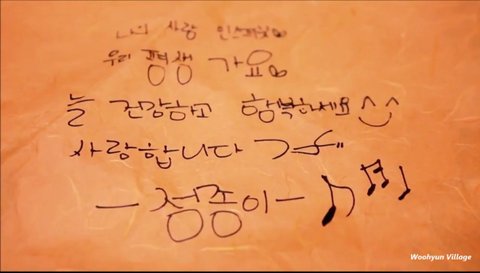 나의 사랑 인스피릿
우리 평생 가요
늘 건강하고 행복하세요 ^^
사랑합니다
- 정종이 -
Woohyun Village